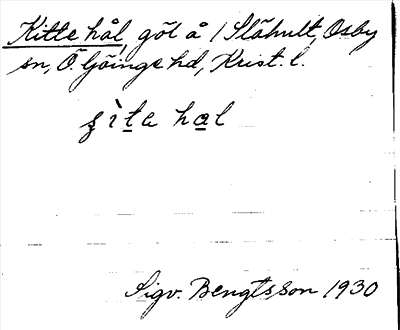 Kitte hål, göl å / Slähult, Osby
sn, Ö. Göinge hd, Krist. l.
ʂìte hal
Sigv. Bengtsson 1930